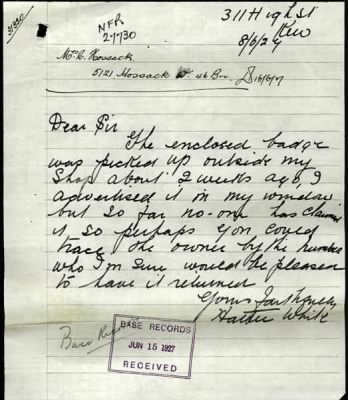 31330
NFR
27730
311 High St
Kew
8/6/27
Mr. C. Hossack,
5121 Hossack W. 46 Bn.
16/6/27
Dear Sir
The enclosed badge
was picked up outside my
shop about 2 weeks ago, I
advertised it in my window
but so far no-one has claimed
it, so perhaps you could
trace the owner by the number
who I'm sure would be pleased
to have it returned
Yours faithfully
White
Base
BASE RECORDS
JUN 15 1927
RECEIVED